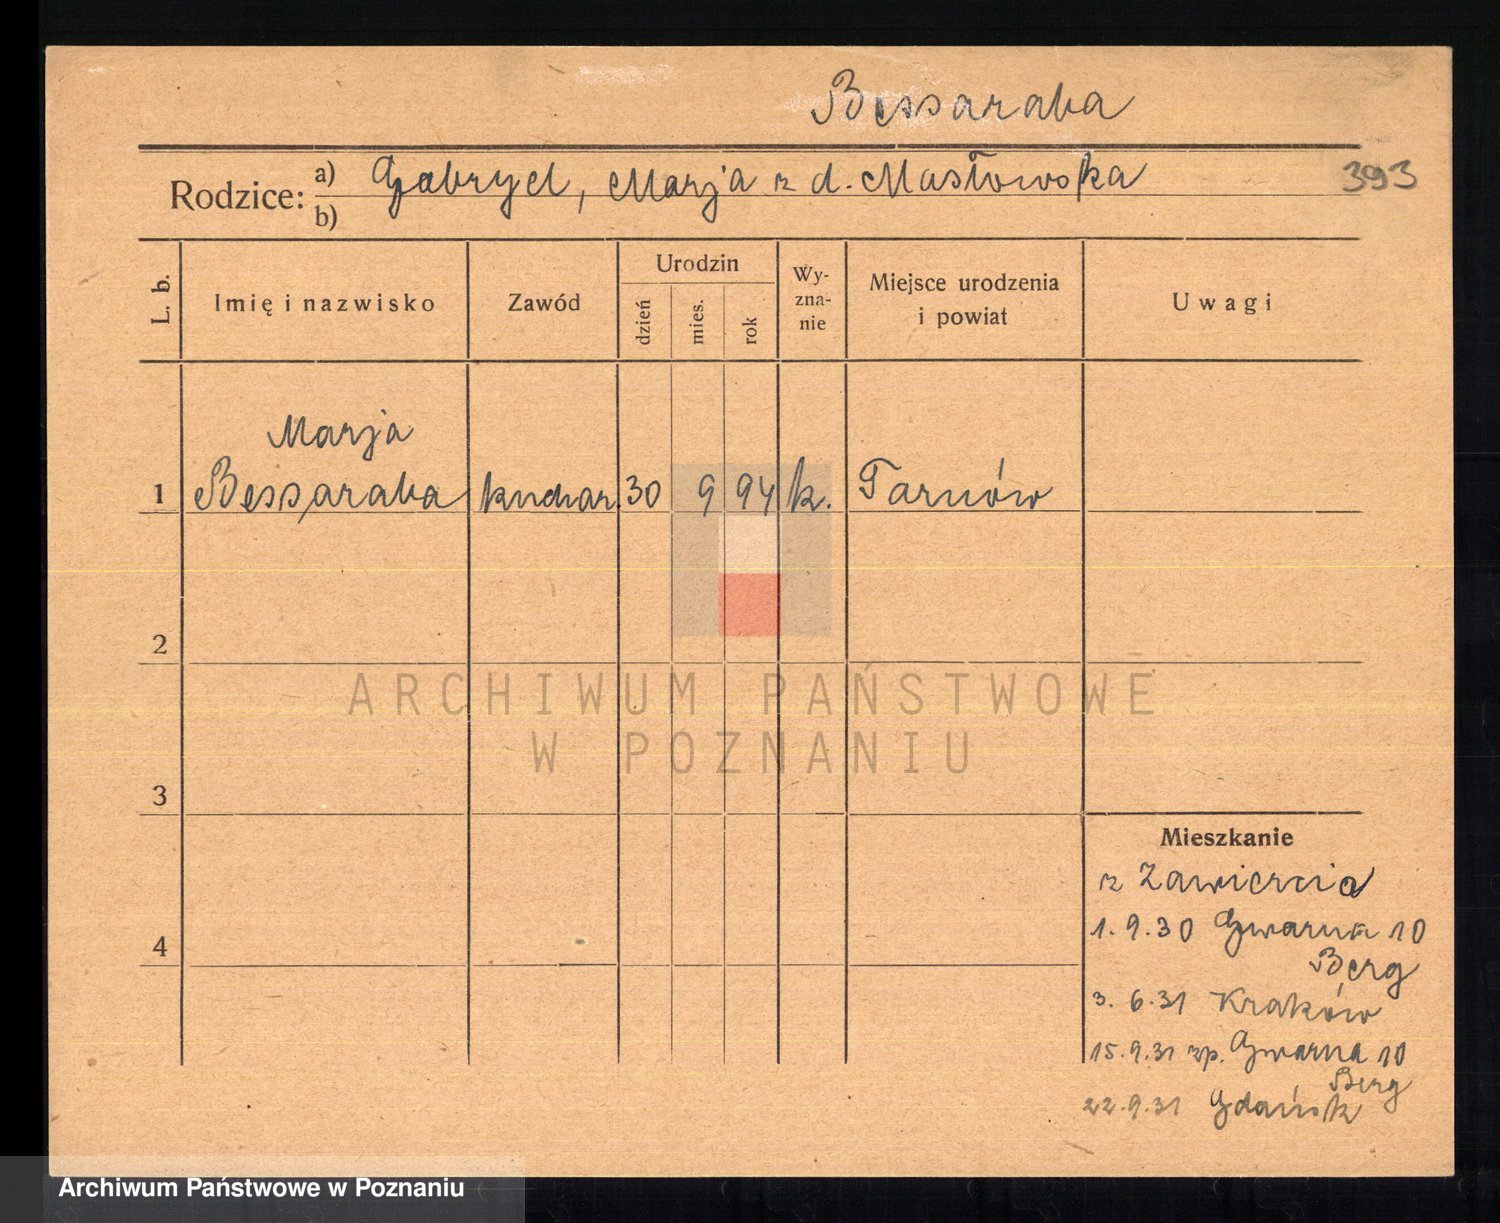 Bessaraba
393
Rodzice: a) Gabryel, Marja z d. Masłowska
b)
L. b.
Imię i nazwisko
Zawód
Urodzin
dzień
mies.
rok
Wy-
zna-
nie
Miejsce urodzenia
i powiat
Uwagi
Marja
1 Bessaraba kuchar. 30 9 94 k. Tarnów
2
ARCHIWUM PAŃSTWOWE
W POZNANIU
3
Mieszkanie
z Zawiercia
1.9.30 Gwarna 10
Berg
4
3.6.31 Kraków
15.9.31 zp. Gwarna 10
Berg
22.9.31 Gdańsk
Archiwum Państwowe w Poznaniu